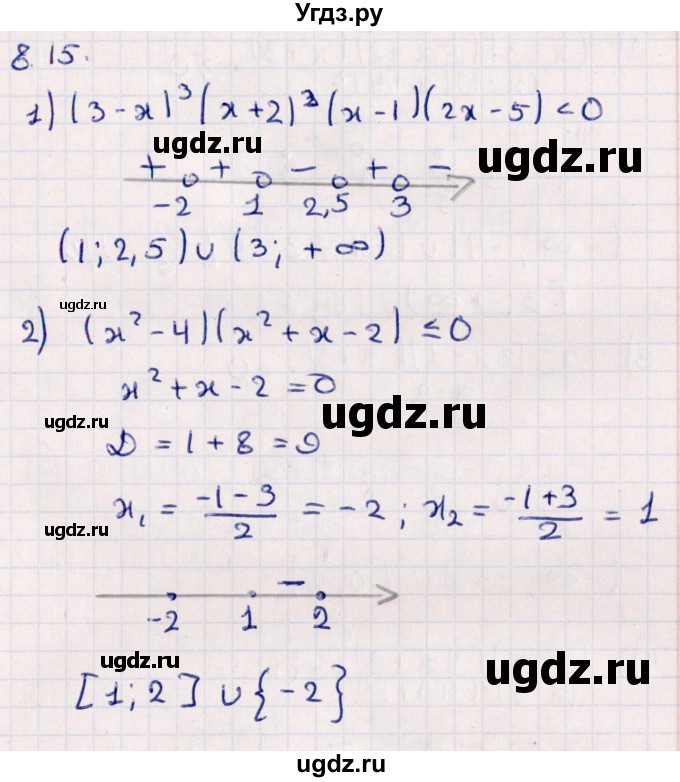 Угдз.ру
8.15.
1) (3-x)³(x+2)²(x-1)(2x-5)<0
ugdz.ru ugdz.ru
+ + - + -
-2 1 2,5 3
(1; 2,5) ∪ (3; +∞)
ugdz.ru
2) (x²-4)(x²+x-2) ≤ 0
x²+x-2=0
ugdz.ru ugdz.ru
D = 1+8 = 9
x₁ = (-1-3)/2 = -2; x₂ = (-1+3)/2 = 1
ugdz.ru
-
-2 1 2
ugdz.ru ugdz.ru
[1; 2] ∪ {-2}
ugdz.ru